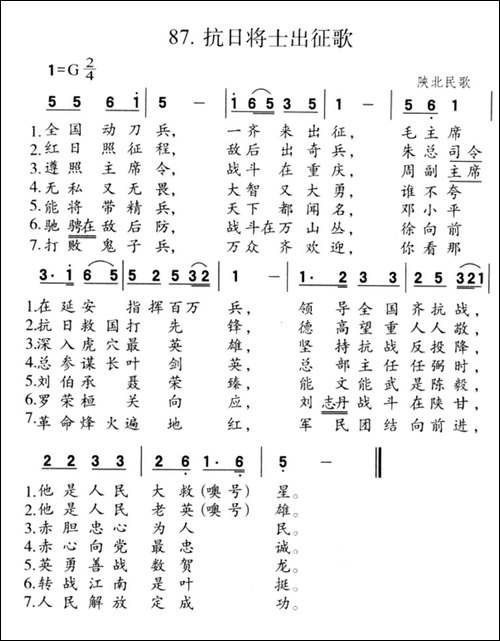 87. 抗日将士出征歌
1=G 2/4
陕北民歌
5 5 6 i 5 － i 6 5 3 5 1 － 5 6 1
1.全国动刀兵， 一齐来出征， 毛主席
2.红日照征程， 敌后出奇兵， 朱总司令
3.遵照主席令， 战斗在重庆， 周副主席
4.无私又无畏， 大智又大勇， 谁不夸
5.能将带精兵， 天下都闻名， 邓小平
6.驰骋在敌后防， 战斗在万山丛， 徐向前
7.打败鬼子兵， 万众齐欢迎， 你看那
3· i 6 5 5 2 5 3 2 1 － 1· 2 3 3 5 2 3 2 1
1.在延安指挥百万兵， 领导全国齐抗战，
2.抗日救国打先锋， 德高望重人人敬，
3.深入虎穴最英雄， 坚持抗战反投降，
4.总参谋长叶剑英， 总部主任任弼时，
5.刘伯承聂荣臻， 能文能武是陈毅，
6.罗荣桓关向应， 刘志丹战斗在陕甘，
7.革命烽火遍地红， 军民团结向前进，
2 2 3 3 2 6 1· 6 5 －
1.他是人民大救(噢号)星。
2.他是人民老英(噢号)雄。
3.赤胆忠心为人民。
4.赤心向党最忠诚。
5.英勇善战数贺龙。
6.转战江南是叶挺。
7.人民解放定成功。